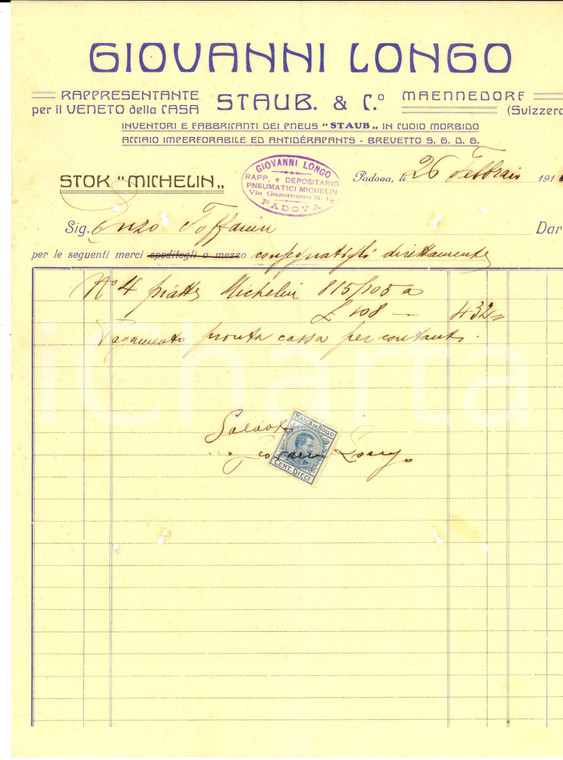 GIOVANNI LONGO
RAPPRESENTANTE
per il VENETO della CASA
STAUB. & C.º
MAENNEDORF
(Svizzera
INVENTORI E FABBRICANTI DEI PNEUS "STAUB„ IN CUOIO MORBIDO
ACCIAIO IMPERFORABILE ED ANTIDÉRAPANTS - BREVETTO S. G. D. G.
STOK "MICHELIN„
GIOVANNI LONGO
RAPP. e DEPOSITARIO
PNEUMATICI MICHELIN
Via Gazometro N. 14
PADOVA
Padova, li 26 Febbraio 191
Sig. Enzo Toffanin Dar
per le seguenti merci speditegli a mezzo consegnatigli direttamente
Nº 4 piatte Michelin 815/105 a
£ 108 — 432
Pagamento pronta cassa per contanti.
Saldato
Giovanni Longo
MARCA DA BOLLO
CENT. DIECI
iCharta